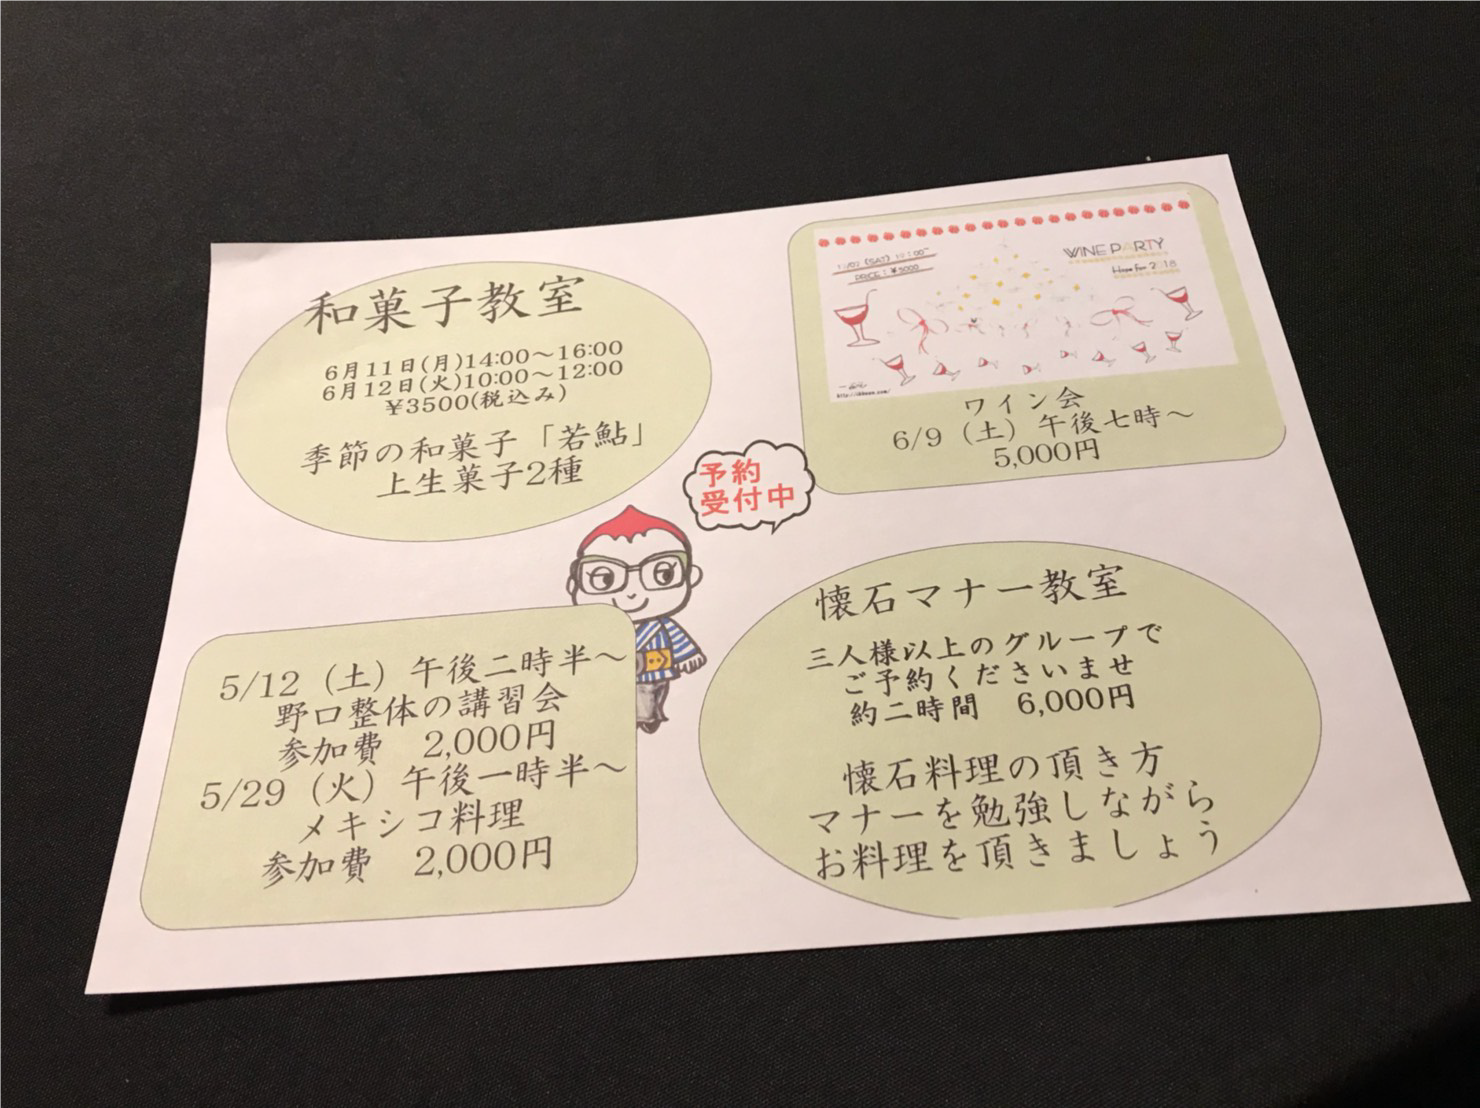 和菓子教室
6月11日(月)14:00〜16:00
6月12日(火)10:00〜12:00
¥3500(税込み)
季節の和菓子「若鮎」
上生菓子2種
WINE PARTY
PRICE：¥5000
ワイン会
6/9（土）午後七時〜
5,000円
予約
受付中
5/12（土）午後二時半〜
野口整体の講習会
参加費　2,000円
5/29（火）午後一時半〜
メキシコ料理
参加費　2,000円
懐石マナー教室
三人様以上のグループで
ご予約くださいませ
約二時間　6,000円
懐石料理の頂き方
マナーを勉強しながら
お料理を頂きましょう